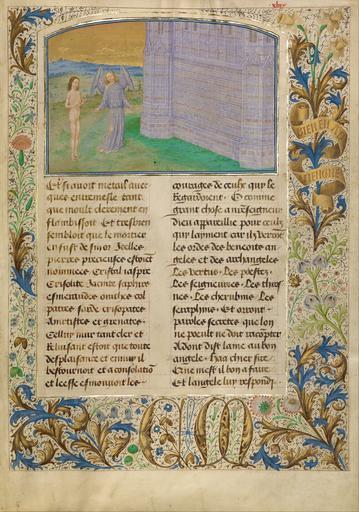 Et si auoit metail auec
ques entremesle tant
que moult clerement en
flambissoit Et tresbien
sembloit que la moitie
en fust de fin or Jcelles
pierres precieuses estoient
nommees Cristal iaspre
Crisolite Jacinte saphirs
esmeraudes
Ametistes et grenates
Cellui mur tant cler et
Reluisant estoit que toute
desplaisance et ennuy il
destournoit et a consolation
et leesse esmouuoit les
courages de ceulx qui le
Regardoient O comme
grant chose a nr̄eseigneur
dieu appareillie pour ceulx
qui laiment car ilz verront
les ordes des benoites an
geles et des archangeles
Les vertus Les poestez
Les seigneuries Les thros
nes Les cherubins Les
seraphins Et orront
paroles secretes que lon
ne peult ne doit racōpter
Adont dist lame au bon
angele Ha cher sire
Cine mest il bon a faire
Et langele luy respondi
BIEN EN
AVIENGNE
C M